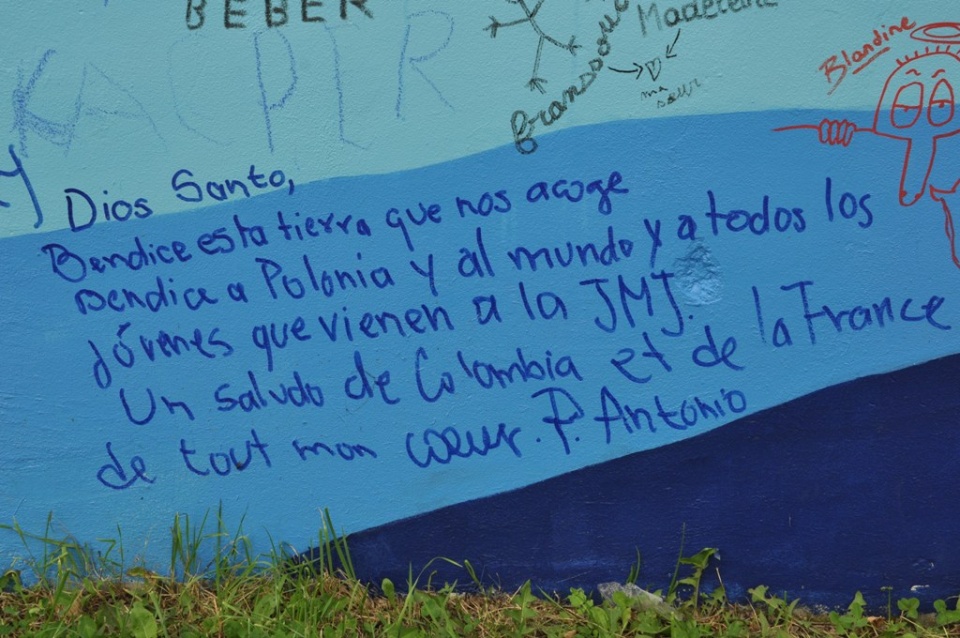 BEBER
Madeleine
Blandine
KACPER
ma soeur
Dios Santo,
Bendice esta tierra que nos acoge
Bendice a Polonia y al mundo y a todos los
jóvenes que vienen a la JMJ.
Un saludo de Colombia et de la France
de tout mon coeur. P. Antonio